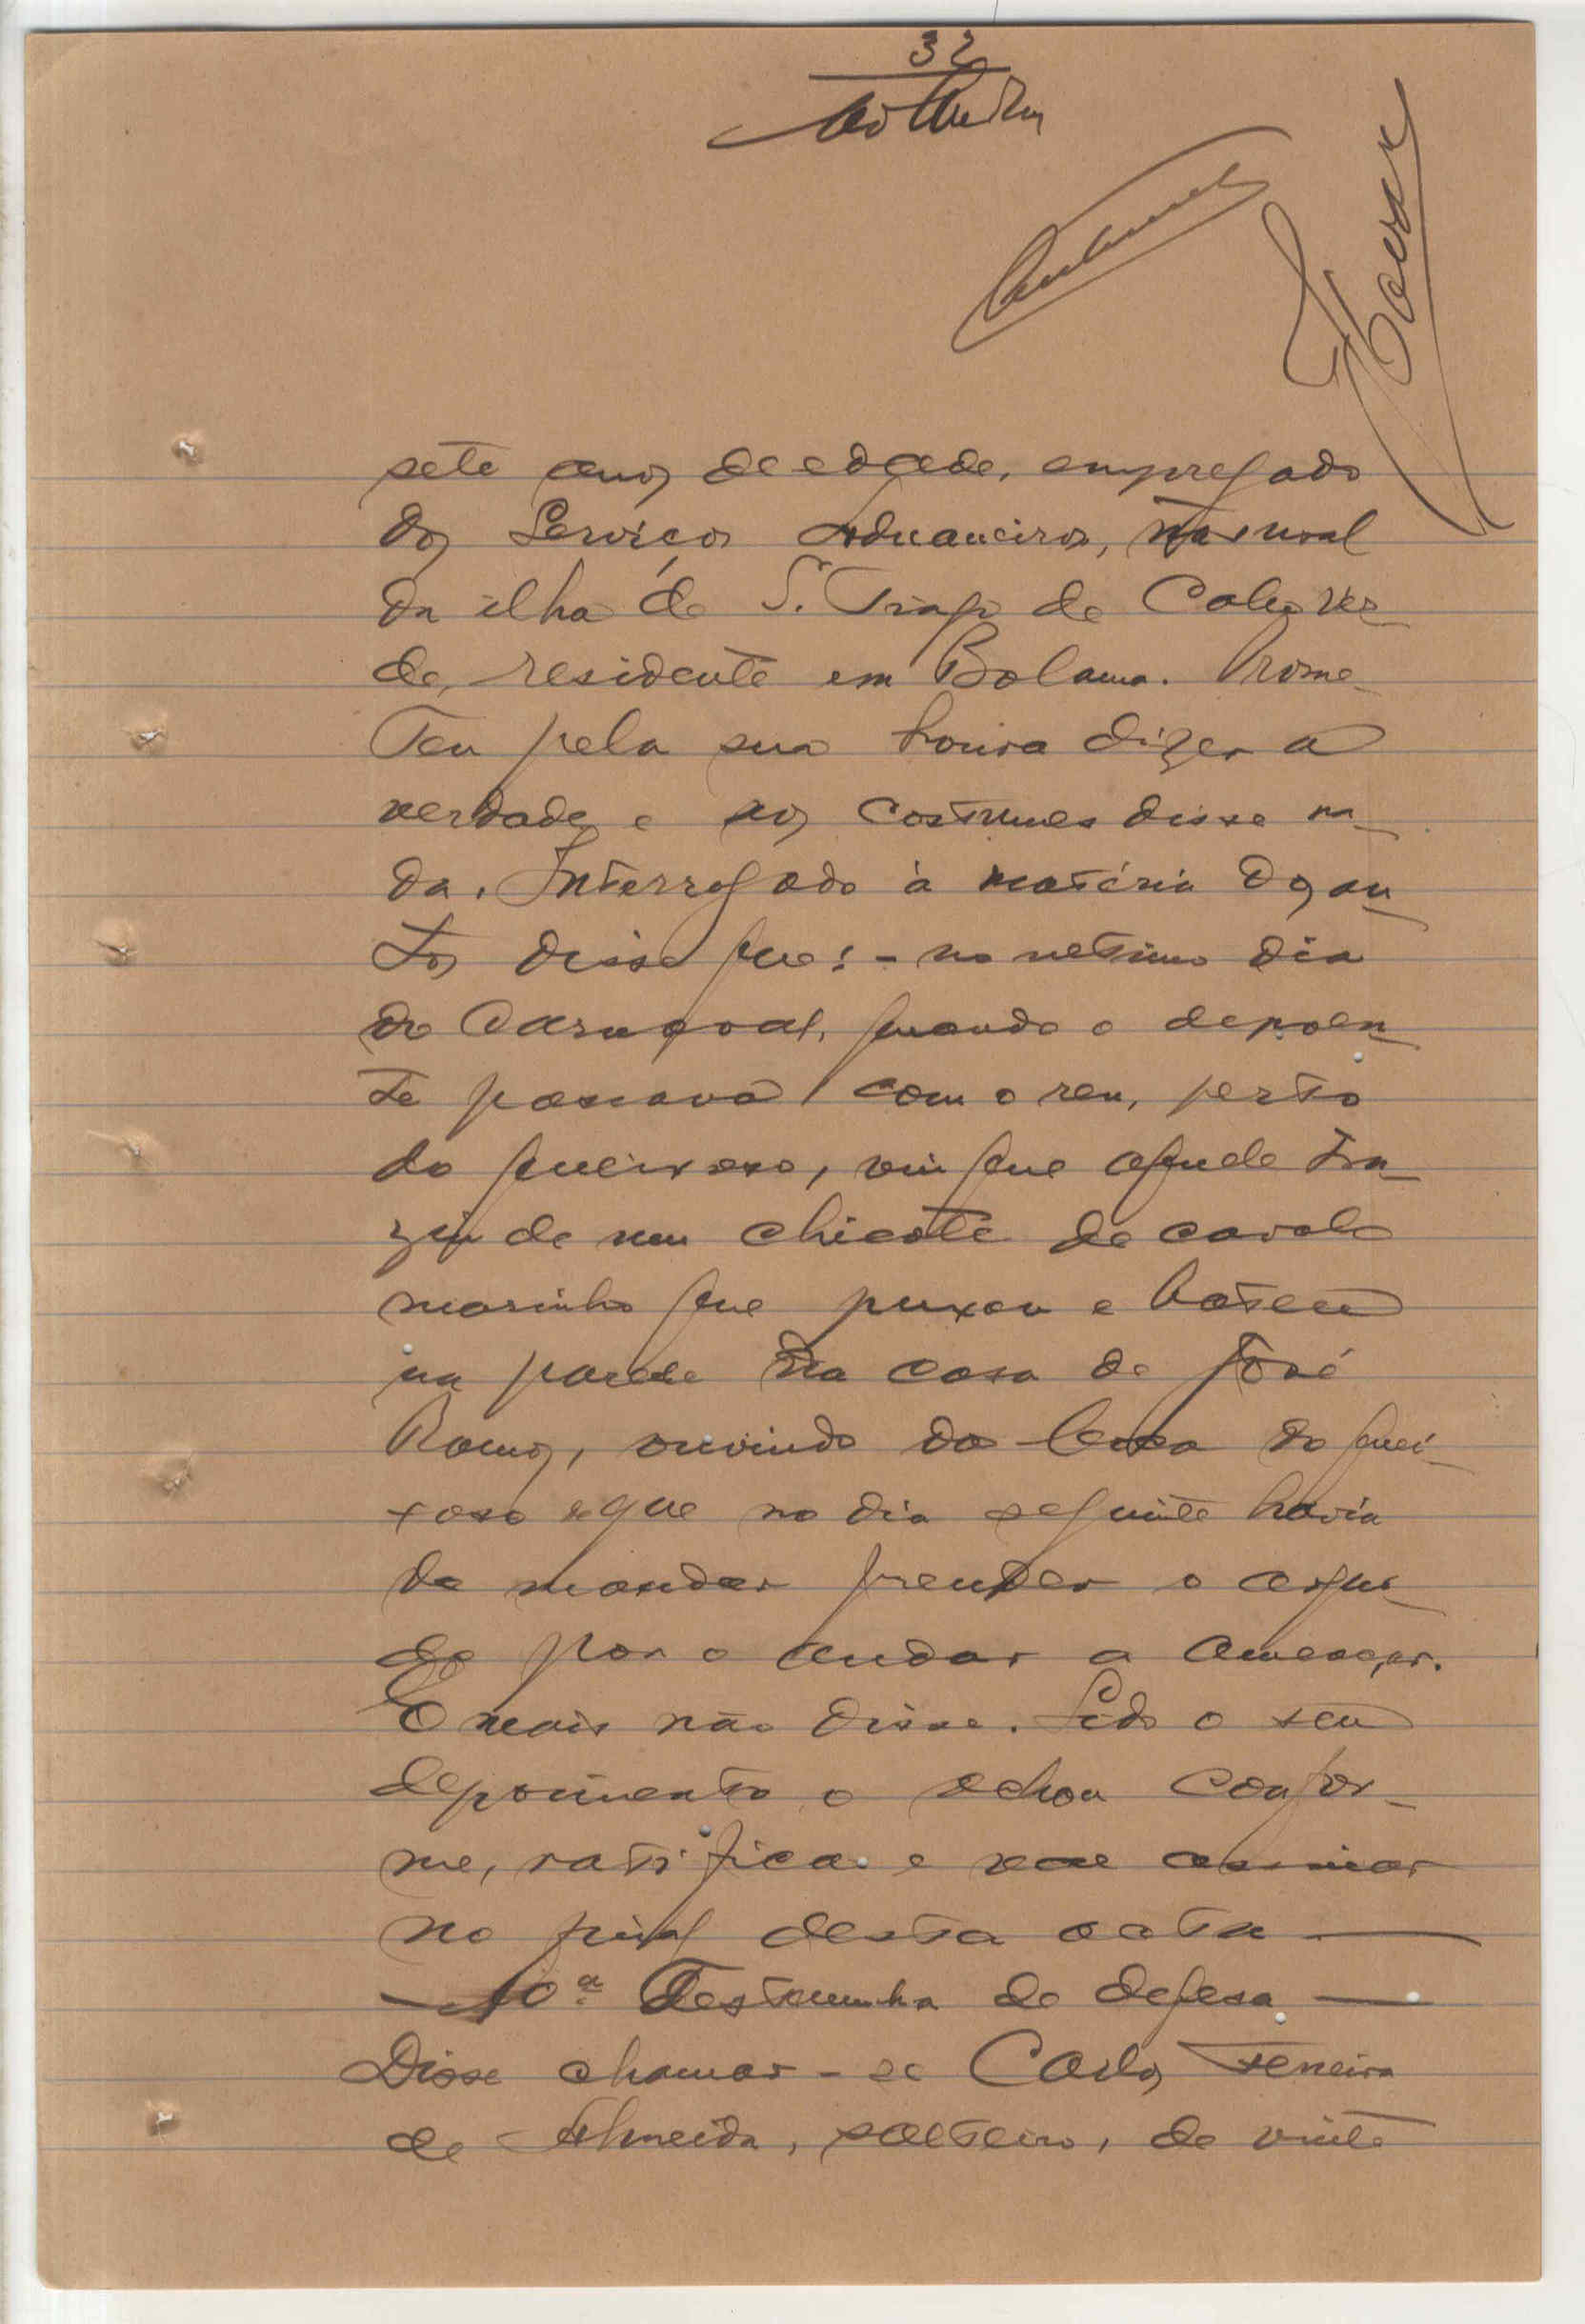 32
sete anos de edade, empregado
dos Serviços Aduaneiros, natural
da ilha de S. Tiago de Cabo Ver-
de, residente em Bolama. Prome-
teu pela sua honra dizer a
verdade e aos costumes disse na-
da. Interrogado à matéria dos au-
tos disse que: - no ultimo dia
do Carnaval, quando o depoen-
te passava com o reu, perto
do queixoso, viu que aquele tra-
zia de um chicote de cavalo
marinho que puxou e bateu
na parede da casa de José
Ramos, ouvindo da boca do quei-
xoso que no dia seguinte havia
de mandar prender o argui-
do por o andar a ameaçar.
E mais não disse. Lido o seu
depoimento o achou confor-
me, ratifica e vae assinar
no final desta acta —
— 10ª Testemunha de defesa —
Disse chamar-se Carlos Ferreira
de Almeida, solteiro, de vinte